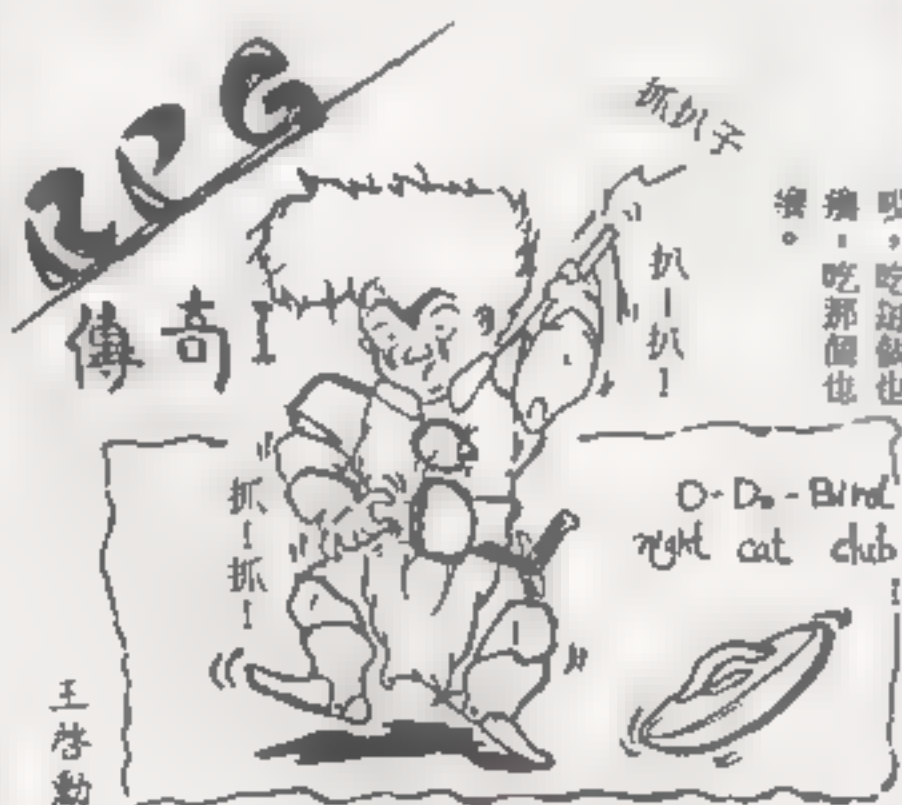 RPG
傳奇I
抓扒子
扒!扒!
抓!抓!
癢,吃那個也
癢。
O-Do-Bird
night cat club
王啓勳